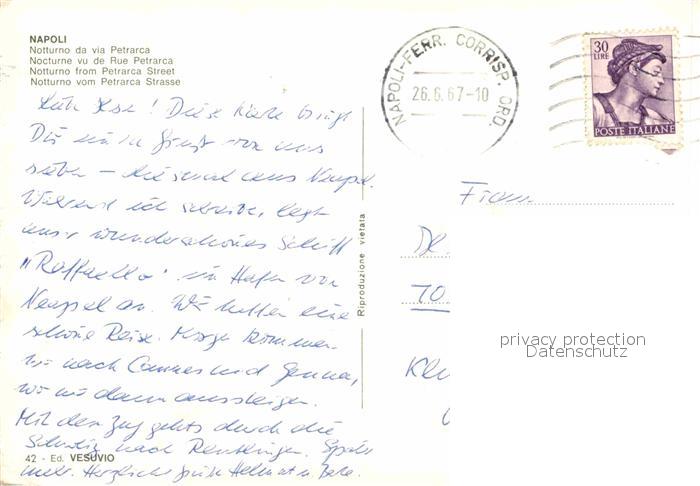 NAPOLI
Notturno da via Petrarca
Nocturne vu de Rue Petrarca
Notturno from Petrarca Street
Notturno vom Petrarca Strasse
NAPOLI-FERR. CORRISP. ORD.
26.6.67-10
30
LIRE
POSTE ITALIANE
! Diese Karte bringt
Dir einen Gruß von uns
beiden – diesmal aus Neapel.
Während ich schreibe, legt
unser wunderschönes Schiff
„Raffaello" im Hafen von
Neapel an. Wir hatten eine
schöne Reise. Morgen kommen
wir nach Cannes und Genua,
wo wir dann aussteigen.
Mit dem Zug gehts durch die
Schweiz nach Reutlingen. Später
mehr. Herzliche Grüße Helmut u.
42 - Ed. VESUVIO
Riproduzione vietata
Frau
70
privacy protection
Datenschutz